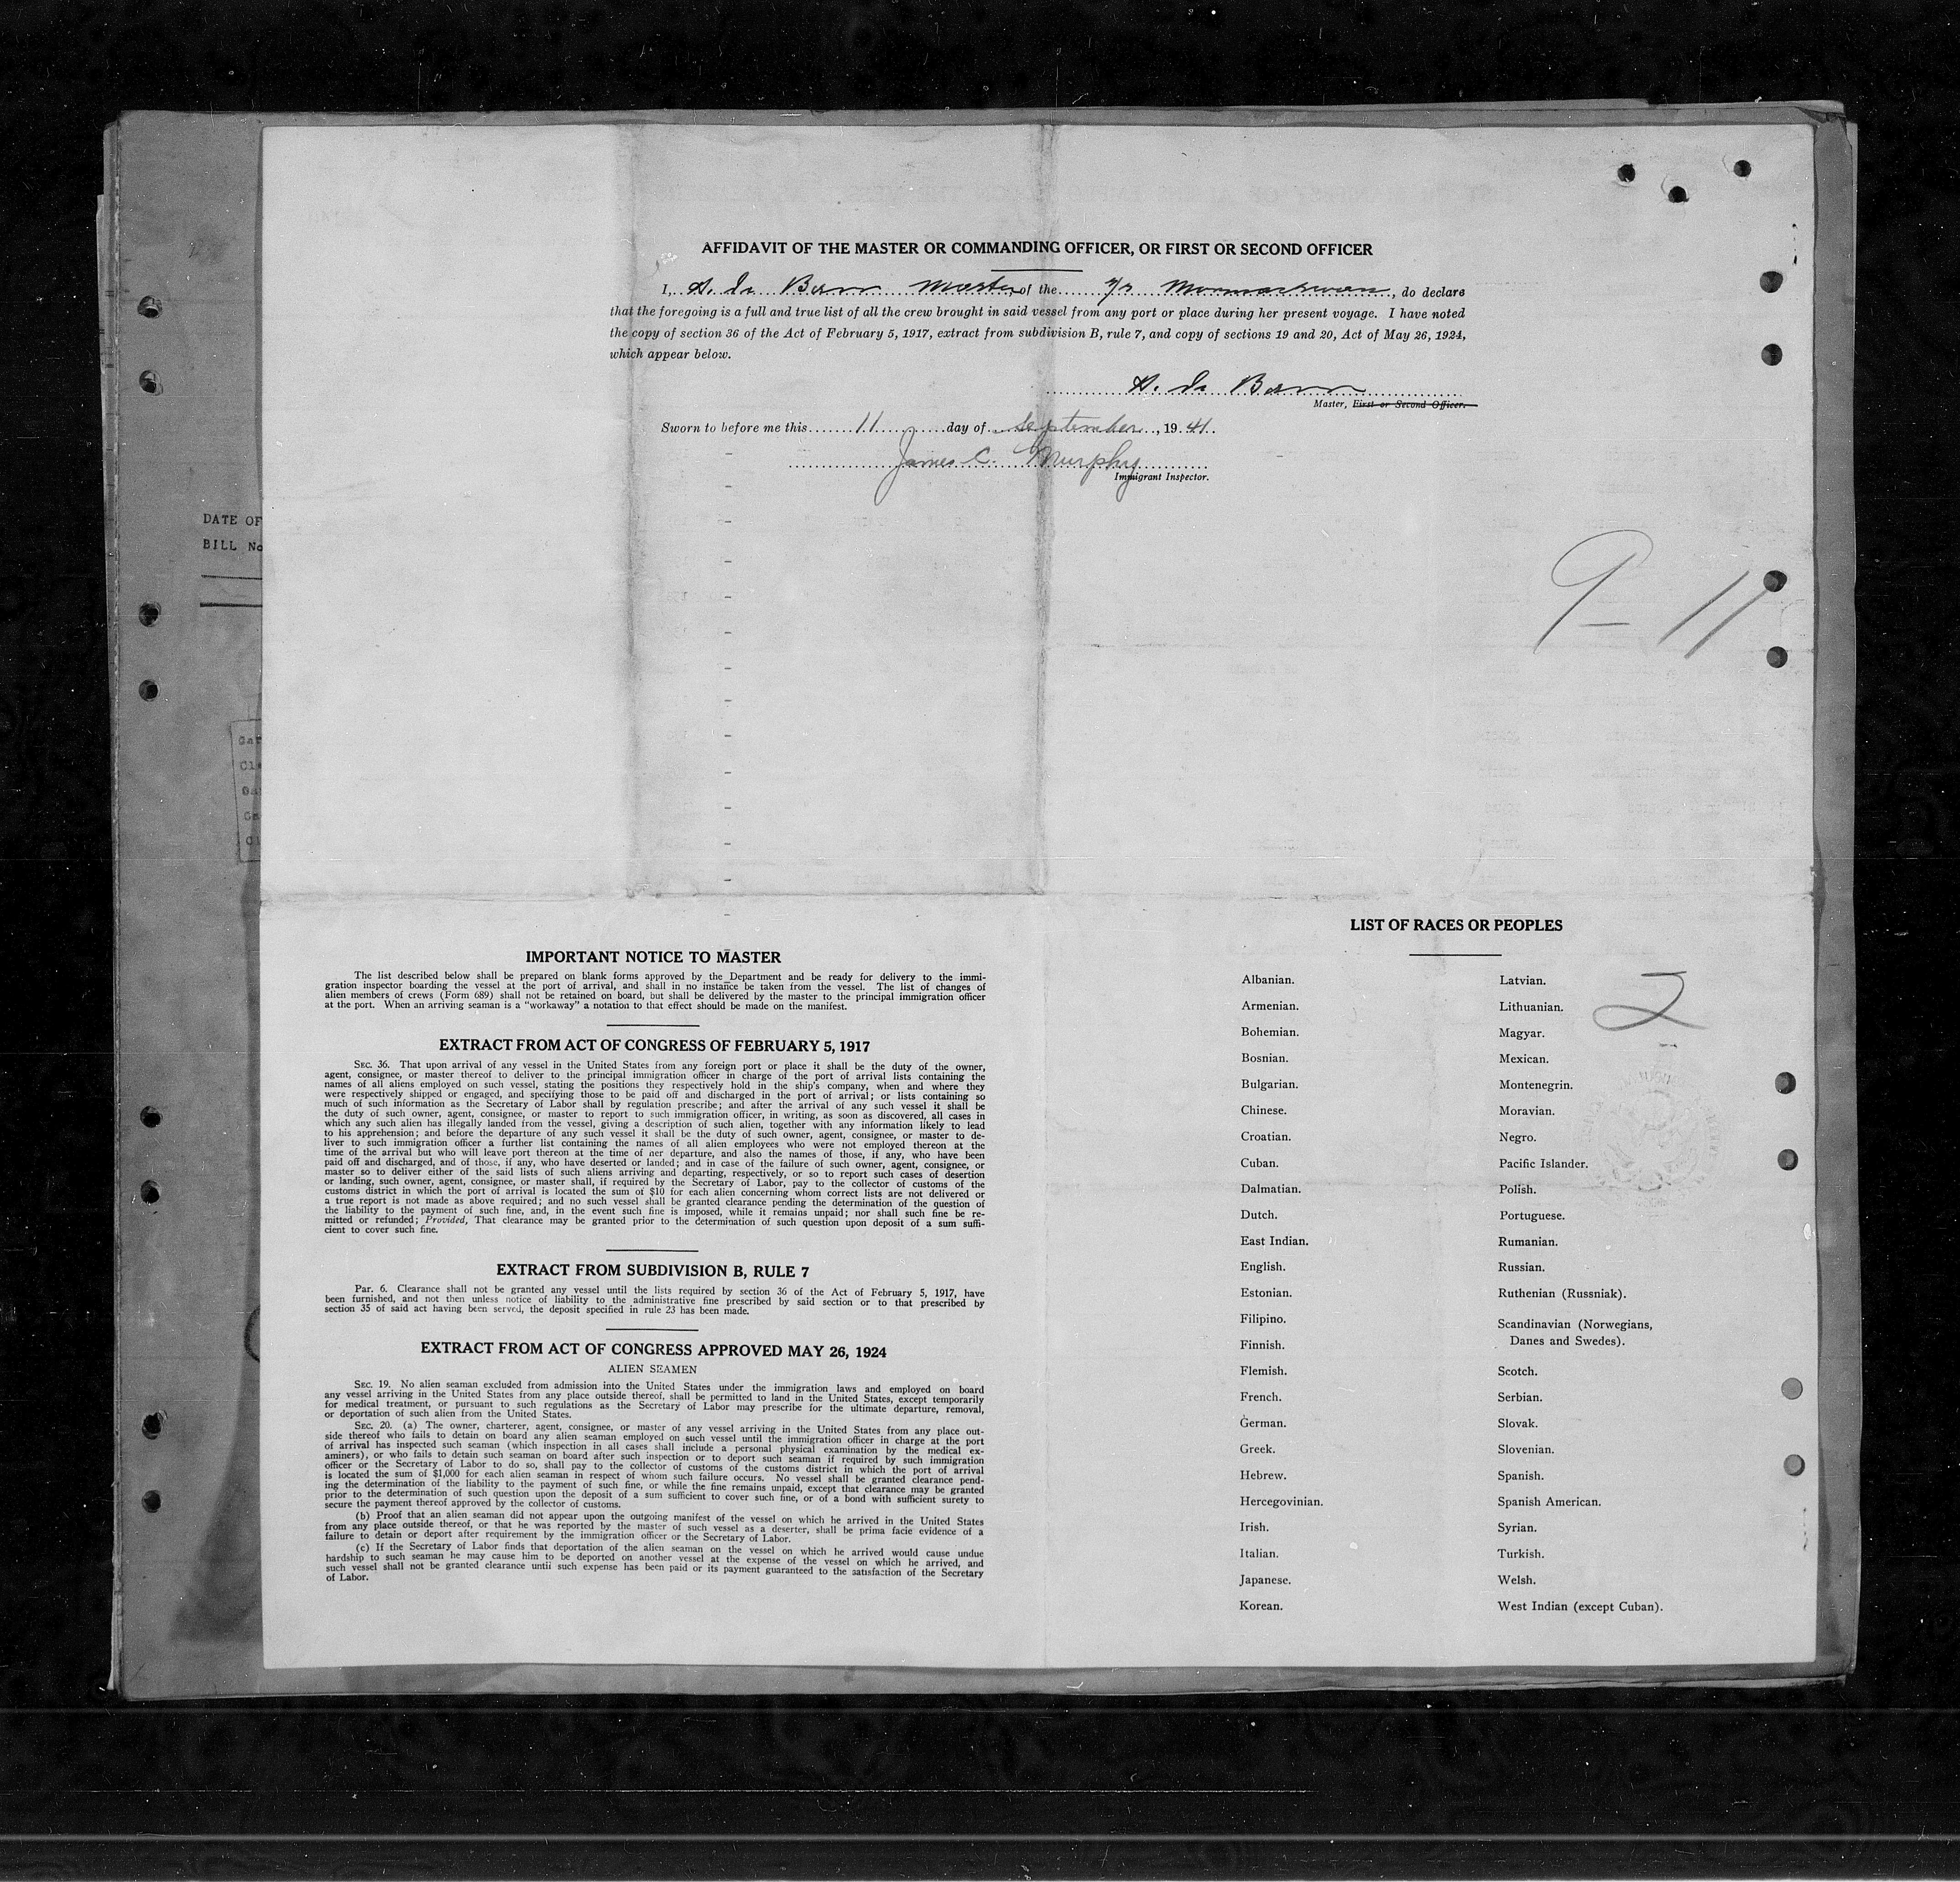 AFFIDAVIT OF THE MASTER OR COMMANDING OFFICER, OR FIRST OR SECOND OFFICER
I, Master of the Mormacswan, do declare
that the foregoing is a full and true list of all the crew brought in said vessel from any port or place during her present voyage. I have noted
the copy of section 36 of the Act of February 5, 1917, extract from subdivision B, rule 7, and copy of sections 19 and 20, Act of May 26, 1924,
which appear below.
Master, First or Second Officer.
Sworn to before me this 11 day of September, 1941.
James C. Murphy
Immigrant Inspector.
DATE OF
BILL No
9-11
IMPORTANT NOTICE TO MASTER
The list described below shall be prepared on blank forms approved by the Department and be ready for delivery to the immi-
gration inspector boarding the vessel at the port of arrival, and shall in no instance be taken from the vessel. The list of changes of
alien members of crews (Form 689) shall not be retained on board, but shall be delivered by the master to the principal immigration officer
at the port. When an arriving seaman is a "workaway" a notation to that effect should be made on the manifest.
EXTRACT FROM ACT OF CONGRESS OF FEBRUARY 5, 1917
SEC. 36. That upon arrival of any vessel in the United States from any foreign port or place it shall be the duty of the owner,
agent, consignee, or master thereof to deliver to the principal immigration officer in charge of the port of arrival lists containing the
names of all aliens employed on such vessel, stating the positions they respectively hold in the ship's company, when and where they
were respectively shipped or engaged, and specifying those to be paid off and discharged in the port of arrival; or lists containing so
much of such information as the Secretary of Labor shall by regulation prescribe; and after the arrival of any such vessel it shall be
the duty of such owner, agent, consignee, or master to report to such immigration officer, in writing, as soon as discovered, all cases in
which any such alien has illegally landed from the vessel, giving a description of such alien, together with any information likely to lead
to his apprehension; and before the departure of any such vessel it shall be the duty of such owner, agent, consignee, or master to de-
liver to such immigration officer a further list containing the names of all alien employees who were not employed thereon at the
time of the arrival but who will leave port thereon at the time of her departure, and also the names of those, if any, who have been
paid off and discharged, and of those, if any, who have deserted or landed; and in case of the failure of such owner, agent, consignee, or
master so to deliver either of the said lists of such aliens arriving and departing, respectively, or so to report such cases of desertion
or landing, such owner, agent, consignee, or master shall, if required by the Secretary of Labor, pay to the collector of customs of the
customs district in which the port of arrival is located the sum of $10 for each alien concerning whom correct lists are not delivered or
a true report is not made as above required; and no such vessel shall be granted clearance pending the determination of the question of
the liability to the payment of such fine, and, in the event such fine is imposed, while it remains unpaid; nor shall such fine be re-
mitted or refunded; Provided, That clearance may be granted prior to the determination of such question upon deposit of a sum suffi-
cient to cover such fine.
EXTRACT FROM SUBDIVISION B, RULE 7
Par. 6. Clearance shall not be granted any vessel until the lists required by section 36 of the Act of February 5, 1917, have
been furnished, and not then unless notice of liability to the administrative fine prescribed by said section or to that prescribed by
section 35 of said act having been served, the deposit specified in rule 23 has been made.
EXTRACT FROM ACT OF CONGRESS APPROVED MAY 26, 1924
ALIEN SEAMEN
SEC. 19. No alien seaman excluded from admission into the United States under the immigration laws and employed on board
any vessel arriving in the United States from any place outside thereof, shall be permitted to land in the United States, except temporarily
for medical treatment, or pursuant to such regulations as the Secretary of Labor may prescribe for the ultimate departure, removal,
or deportation of such alien from the United States.
SEC. 20. (a) The owner, charterer, agent, consignee, or master of any vessel arriving in the United States from any place out-
side thereof who fails to detain on board any alien seaman employed on such vessel until the immigration officer in charge at the port
of arrival has inspected such seaman (which inspection in all cases shall include a personal physical examination by the medical ex-
aminers), or who fails to detain such seaman on board after such inspection or to deport such seaman if required by such immigration
officer or the Secretary of Labor to do so, shall pay to the collector of customs of the customs district in which the port of arrival
is located the sum of $1,000 for each alien seaman in respect of whom such failure occurs. No vessel shall be granted clearance pend-
ing the determination of the liability to the payment of such fine, or while the fine remains unpaid, except that clearance may be granted
prior to the determination of such question upon the deposit of a sum sufficient to cover such fine, or of a bond with sufficient surety to
secure the payment thereof approved by the collector of customs.
(b) Proof that an alien seaman did not appear upon the outgoing manifest of the vessel on which he arrived in the United States
from any place outside thereof, or that he was reported by the master of such vessel as a deserter, shall be prima facie evidence of a
failure to detain or deport after requirement by the immigration officer or the Secretary of Labor.
(c) If the Secretary of Labor finds that deportation of the alien seaman on the vessel on which he arrived would cause undue
hardship to such seaman he may cause him to be deported on another vessel at the expense of the vessel on which he arrived, and
such vessel shall not be granted clearance until such expense has been paid or its payment guaranteed to the satisfaction of the Secretary
of Labor.
LIST OF RACES OR PEOPLES
Albanian.
Armenian.
Bohemian.
Bosnian.
Bulgarian.
Chinese.
Croatian.
Cuban.
Dalmatian.
Dutch.
East Indian.
English.
Estonian.
Filipino.
Finnish.
Flemish.
French.
German.
Greek.
Hebrew.
Hercegovinian.
Irish.
Italian.
Japanese.
Korean.
Latvian.
Lithuanian.
Magyar.
Mexican.
Montenegrin.
Moravian.
Negro.
Pacific Islander.
Polish.
Portuguese.
Rumanian.
Russian.
Ruthenian (Russniak).
Scandinavian (Norwegians,
Danes and Swedes).
Scotch.
Serbian.
Slovak.
Slovenian.
Spanish.
Spanish American.
Syrian.
Turkish.
Welsh.
West Indian (except Cuban).
2